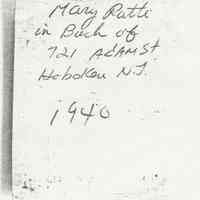 Mary Ratti
in Back of
721 ADAM St
Hoboken N.J.
1940